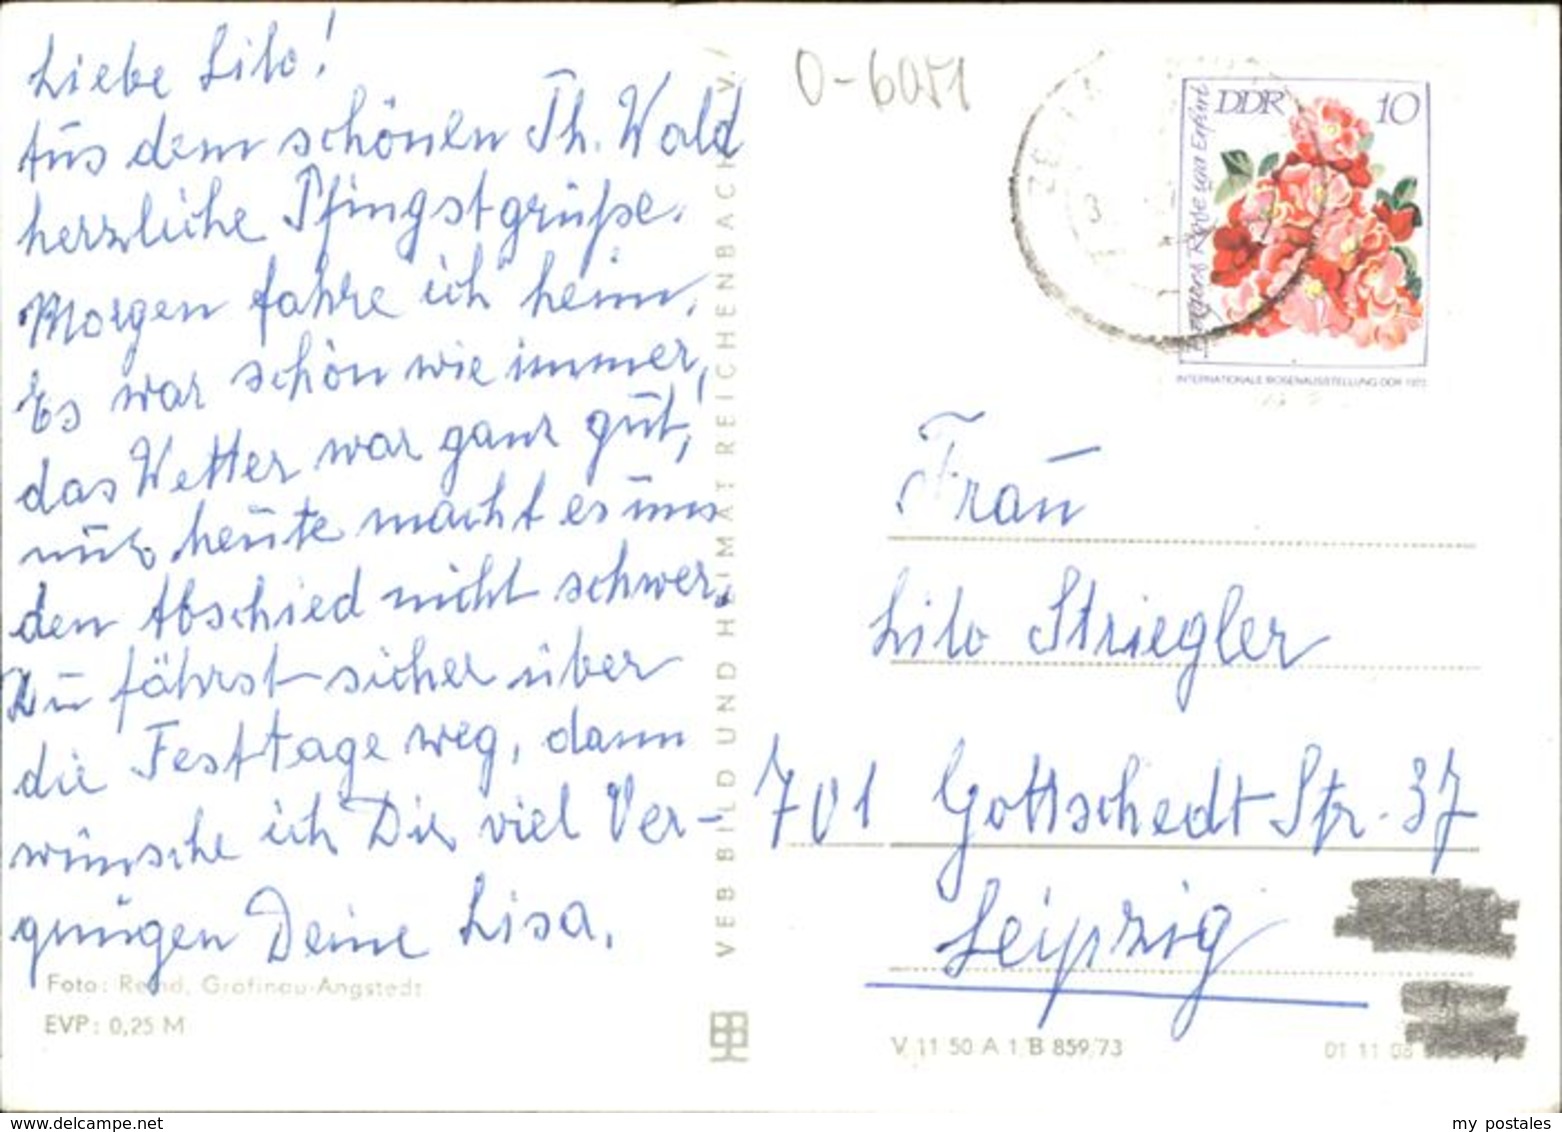 Liebe Lilo!
Aus dem schönen Th. Wald
herzliche Pfingstgrüße.
Morgen fahre ich heim.
Es war schön wie immer,
das Wetter war ganz gut,
nur heute macht es uns
den Abschied nicht schwer.
Du fährst sicher über
die Festtage weg, dann
wünsche ich Dir viel Ver-
gnügen Deine Lisa.
Foto: Remd, Grafinau-Angstedt
EVP: 0,25 M
VEB BILD UND HEIMAT REICHENBACH V./
0-6051
DDR 10
iga Erfurt
INTERNATIONALE ROSENAUSSTELLUNG DDR 1972
Frau
Lilo Striegler
701 Gottschedt Str. 37
Leipzig
V 11 50 A 1 B 859/73
01 11 08
delcampe.net
my_postales